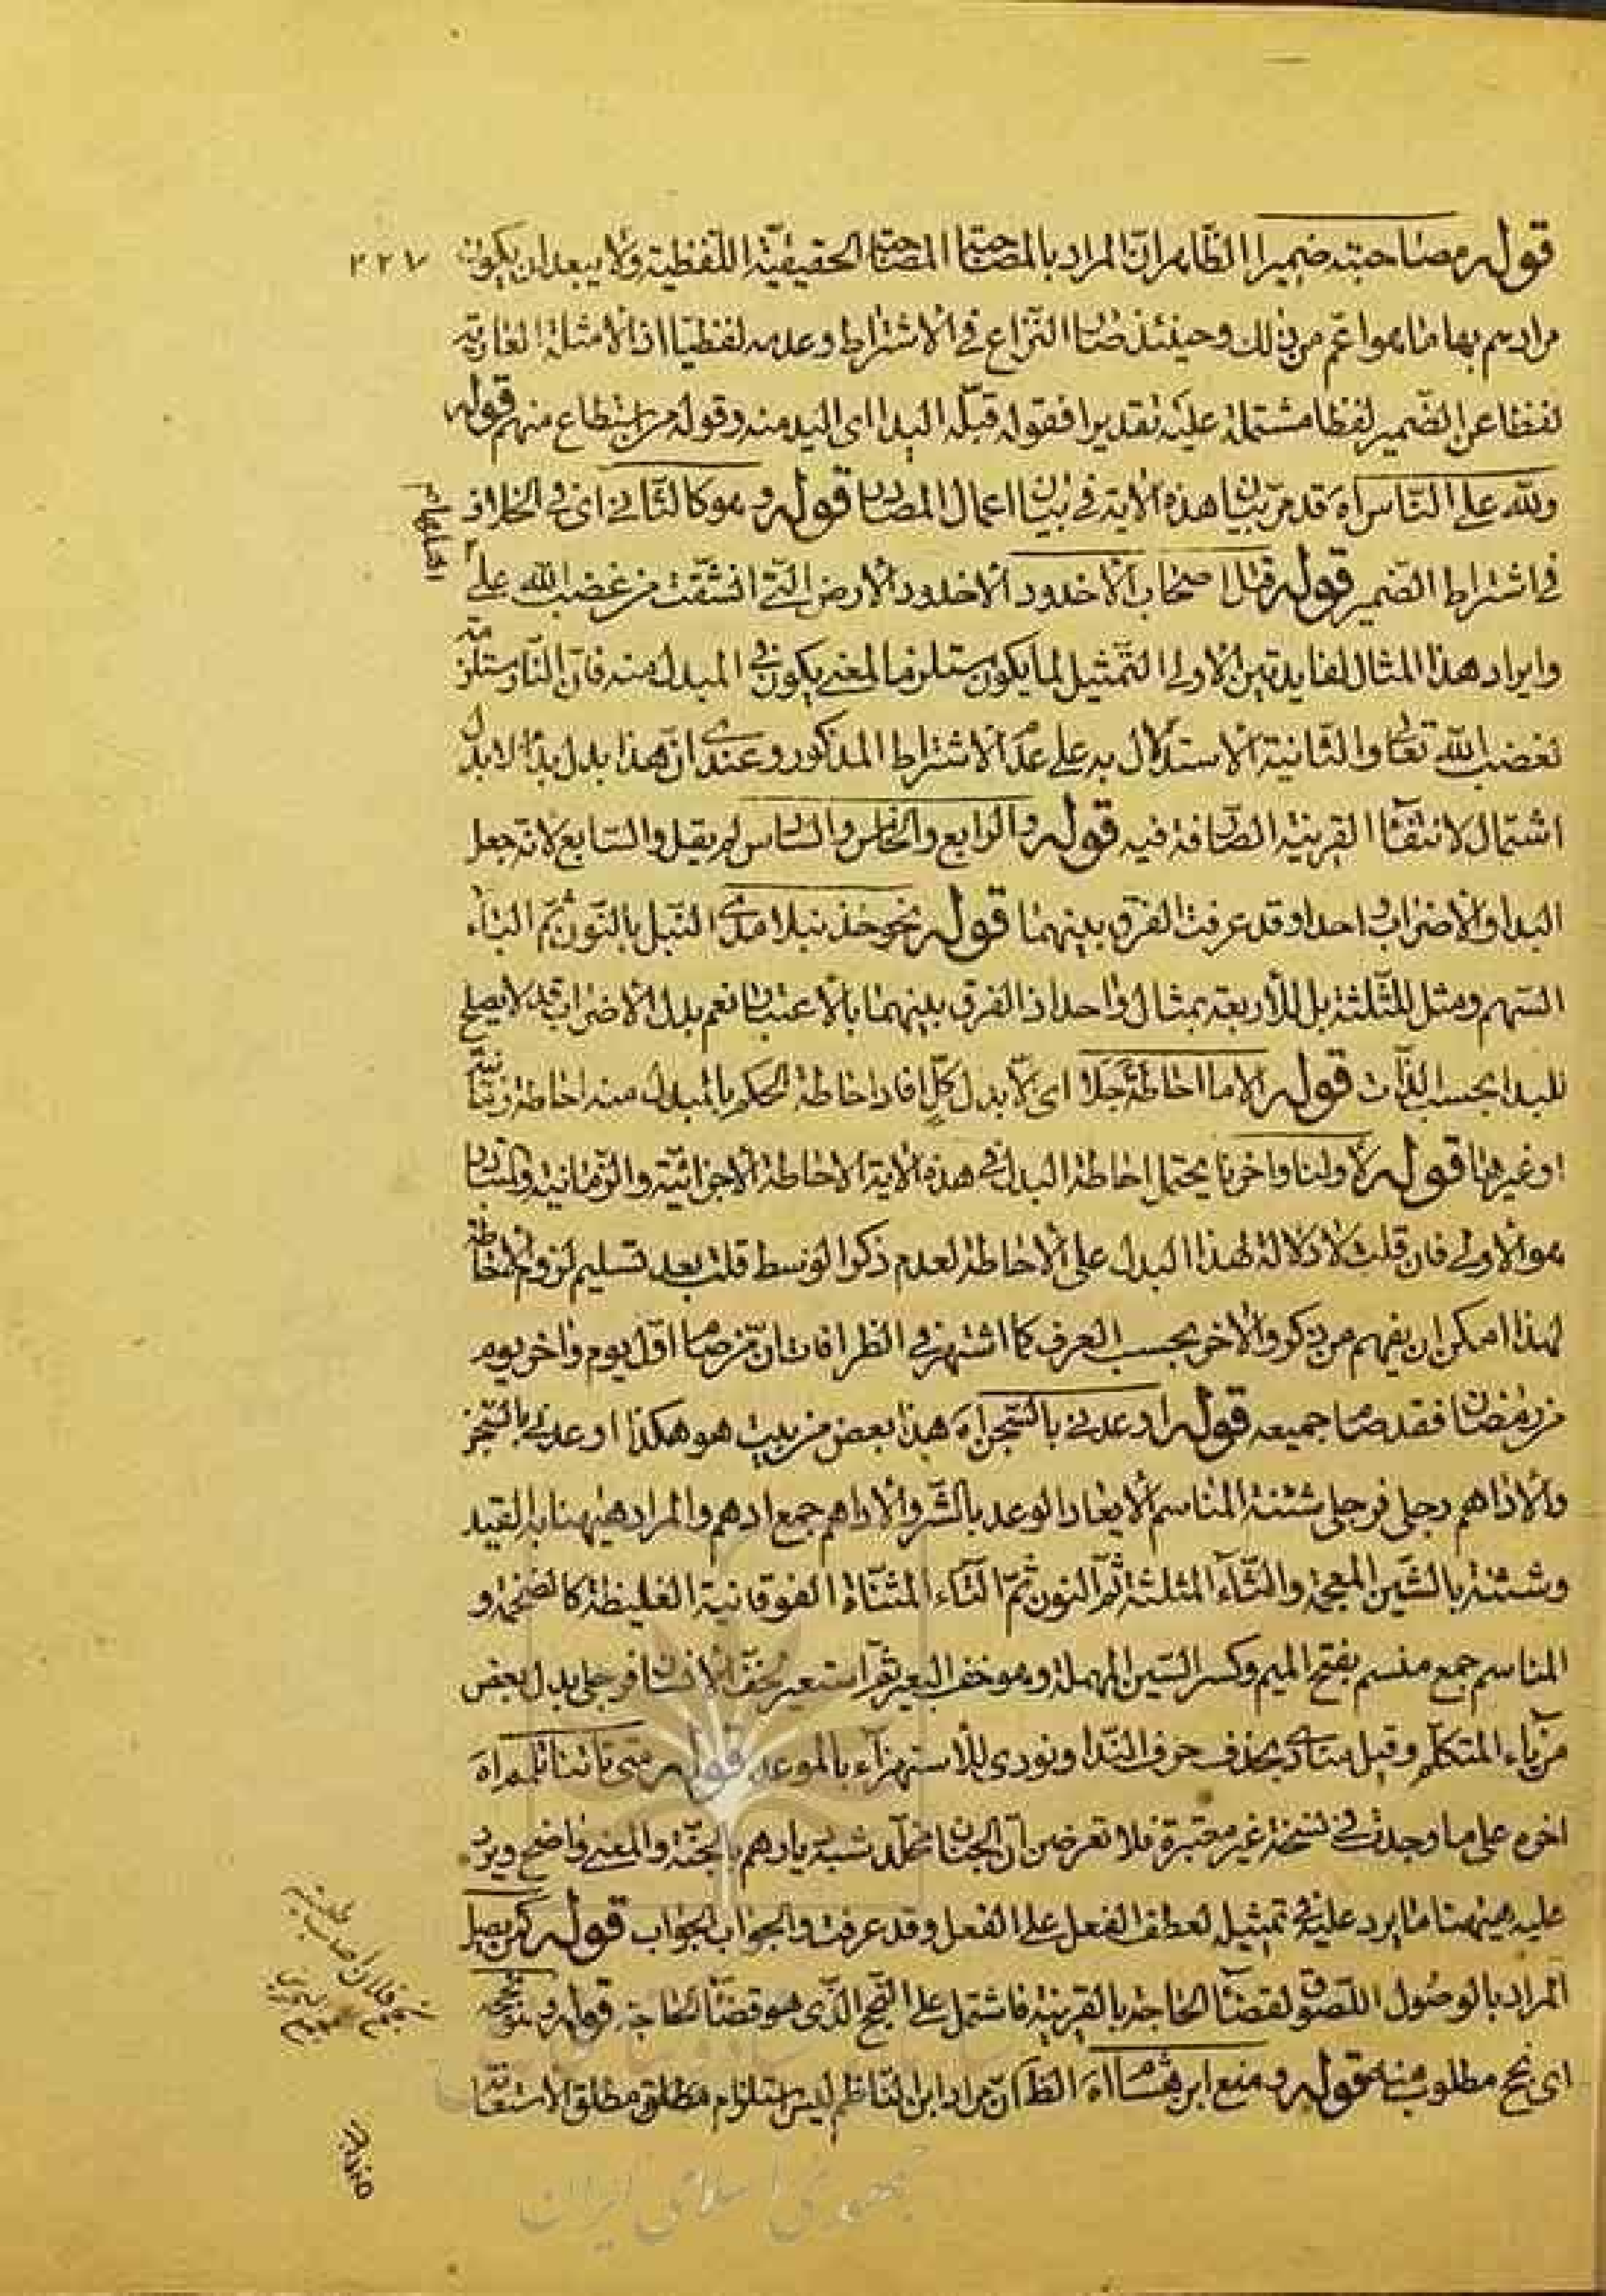 قوله مصاحبته ضميرا الظاهر ان المراد بالمصاحبة المصاحبة الحقيقية اللفظية ولا يبعد ان يكون ٢٢٧
مرادهم بها ما هو اعم من ذلك وحينئذ صار النزاع في الاشتراط وعدمه لفظيا اذ الامثلة العارية
لفظا عن الضمير لفظا مشتملة عليه تقديرا فقوله قبله اليدا اى اليد منه وقوله من استطاع منهم قوله
ولله على الناس اه قد مر بيان هذه الاية في بيان اعمال المصدر قوله وهو كالثاني اى في الخلاف
في اشتراط الضمير قوله قتل اصحاب الاخدود الاخدود الارض التي انشقت من غضب الله على
وايراد هذا المثال لفايدتين الاولى التمثيل لما يكون مستلزما لمعنى يكون في المبدل منه فان النار مستلزمة
لغضب الله تعالى والثانية الاستدلال به على عدم الاشتراط المذكور وعندى ان هذا بدل بدا لا بدل
اشتمال لانتفاء القرينة الصارفة فيه قوله والرابع والخامس والسادس لم يقل والسابع لانه جعل
البدا والاضراب واحدا وقد عرفت الفرق بينهما قوله نحو خذ نبلا مدى النبل بالنون ثم الباء
السهم ومثل للثلثة بل للاربعة بمثال واحد اذ الفرق بينهما بالاعتبار نعم بدل الاضراب قد لا يصلح
للبدا بحسب الذات قوله الا ما احاطة جلا اى الا بدل كل افاد احاطة الحكم بالمبدل منه احاطة زمانية
او غيرها قوله لاولنا واخرنا يحتمل احاطة البدل في هذه الاية الاحاطة الاجزائية والزمانية والمتبادر
هو الاولى فان قلت لا دلالة لهذا البدل على الاحاطة لعدم ذكر الوسط قلت بعد تسليم لزوم الاحاطة
لهذا امكن ان يفهم من ذكر والاخر بحسب العرف كما اشتهر في الظرافات ان من صام اول يوم واخر يوم
من رمضان فقد صام جميعه قوله اوعدني بالسجن اه هذا بعض من بيت هو هكذا اوعدني بالسجن
والاداهم رجلي فرجلي شثنة المناسم الايعاد الوعد بالشر والاداهم جمع ادهم والمراد هيهنا به القيد
وشثنة بالشين المعجمة والثاء المثلثة ثم النون ثم التاء المثناة الفوقانية الغليظة كالضخمة و
المناسم جمع منسم بفتح الميم وكسر السين المهملة وهو خف البعير ثم استعير لخف الانسان فرجلي بدل بعض
من ياء المتكلم وقيل منادى بحذف حرف النداء ونودى للاستهزاء بالموعد قوله متى تاتنا تلمم اه
اخره على ما وجدت في نسخة غير معتبرة فلا تعرضن ان الجنان مخلد شبه يارهم بالجنة والمعنى واضح ويرد
عليه هيهنا ما يرد عليه في تمثيل لعطف الفعل على الفعل وقد عرفت والجواب الجواب قوله كمن يصل
المراد بالوصول اللصوق لقضاء الحاجة بالقرينة فاشتمل على النجح الذى هو قضاء الحاجة قوله
اى نجح مطلوب منه قوله ومنع ابن هشام اه الظ ان مراد ابن الناظم ليس استلزام مطلق مطلق الاستعانة